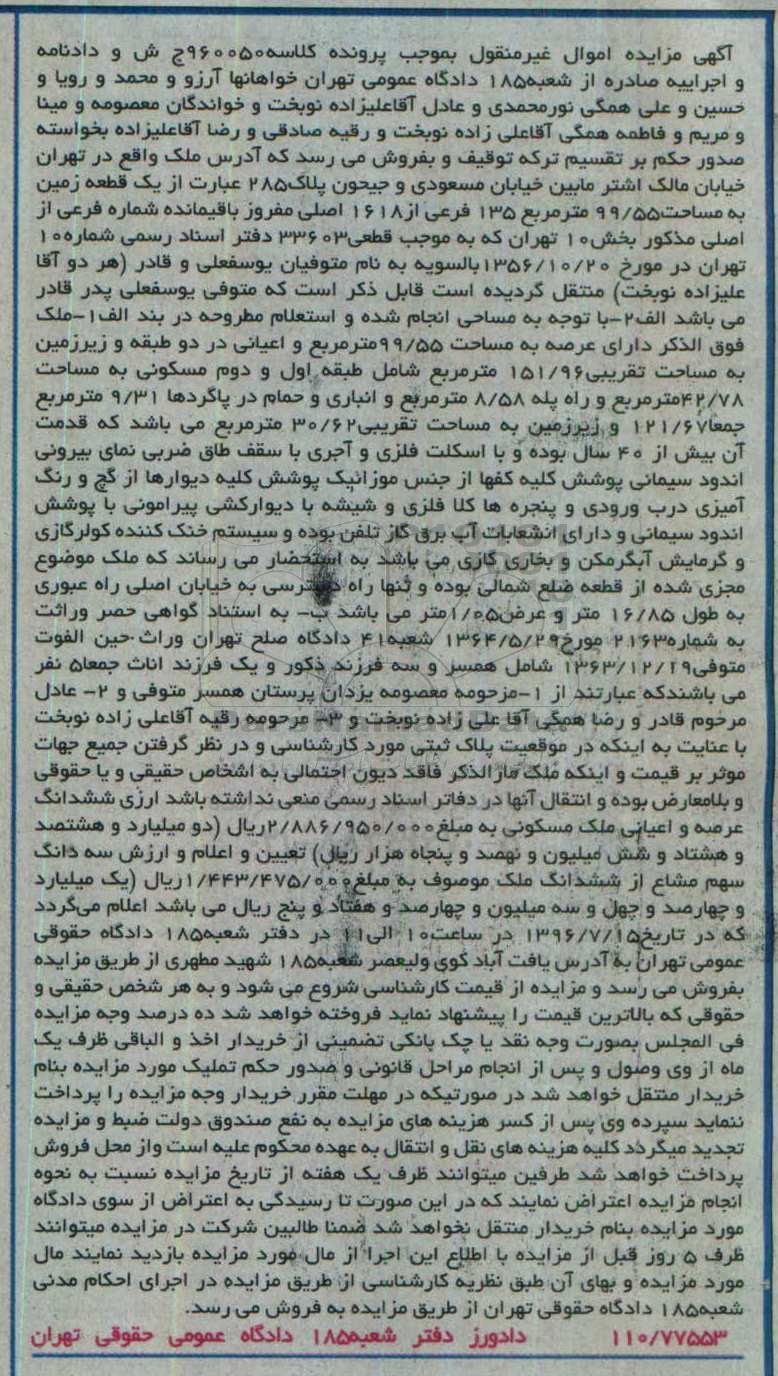 آگهی مزایده اموال غیرمنقول بموجب پرونده کلاسه۹۶۰۰۵۰ج ش و دادنامه
و اجراییه صادره از شعبه۱۸۵ دادگاه عمومی تهران خواهانها آرزو و محمد و رویا و
حسین و علی همگی نورمحمدی و عادل آقاعلیزاده نوبخت و خواندگان معصومه و مینا
و مریم و فاطمه همگی آقاعلی زاده نوبخت و رقیه صادقی و رضا آقاعلیزاده بخواسته
صدور حکم بر تقسیم ترکه توقیف و بفروش می رسد که آدرس ملک واقع در تهران
خیابان مالک اشتر مابین خیابان مسعودی و جیحون پلاک۲۸۵ عبارت از یک قطعه زمین
به مساحت۹۹/۵۵ مترمربع ۱۳۵ فرعی از۱۶۱۸ اصلی مفروز باقیمانده شماره فرعی از
اصلی مذکور بخش۱۰ تهران که به موجب قطعی۳۳۶۰۳ دفتر اسناد رسمی شماره۱۰
تهران در مورخ ۱۳۵۶/۱۰/۲۰بالسویه به نام متوفیان یوسفعلی و قادر (هر دو آقا
علیزاده نوبخت) منتقل گردیده است قابل ذکر است که متوفی یوسفعلی پدر قادر
می باشد الف۲-با توجه به مساحی انجام شده و استعلام مطروحه در بند الف۱-ملک
فوق الذکر دارای عرصه به مساحت ۹۹/۵۵مترمربع و اعیانی در دو طبقه و زیرزمین
به مساحت تقریبی۱۵۱/۹۶ مترمربع شامل طبقه اول و دوم مسکونی به مساحت
۴۲/۷۸مترمربع و راه پله ۸/۵۸ مترمربع و انباری و حمام در پاگردها ۹/۳۱ مترمربع
جمعا۱۲۱/۶۷ و زیرزمین به مساحت تقریبی۳۰/۶۲ مترمربع می باشد که قدمت
آن بیش از ۴۰ سال بوده و با اسکلت فلزی و آجری با سقف طاق ضربی نمای بیرونی
اندود سیمانی پوشش کلیه کفها از جنس موزائیک پوشش کلیه دیوارها از گچ و رنگ
آمیزی درب ورودی و پنجره ها کلا فلزی و شیشه با دیوارکشی پیرامونی با پوشش
اندود سیمانی و دارای انشعابات آب برق گاز تلفن بوده و سیستم خنک کننده کولرگازی
و گرمایش آبگرمکن و بخاری گازی می باشد به استحضار می رساند که ملک موضوع
مجزی شده از قطعه ضلع شمالی بوده و تنها راه دسترسی به خیابان اصلی راه عبوری
به طول ۱۶/۸۵ متر و عرض۱/۰۵متر می باشد ب- به استناد گواهی حصر وراثت
به شماره۲۱۶۳ مورخ۱۳۶۴/۵/۲۹ شعبه۴۱ دادگاه صلح تهران وراث حین الفوت
متوفی۱۳۶۳/۱۲/۱۹ شامل همسر و سه فرزند ذکور و یک فرزند اناث جمعا۵ نفر
می باشندکه عبارتند از ۱-مرحومه معصومه یزدان پرستان همسر متوفی و ۲- عادل
مرحوم قادر و رضا همگی آقا علی زاده نوبخت و ۳- مرحومه رقیه آقاعلی زاده نوبخت
با عنایت به اینکه در موقعیت پلاک ثبتی مورد کارشناسی و در نظر گرفتن جمیع جهات
موثر بر قیمت و اینکه ملک مارالذکر فاقد دیون احتمالی به اشخاص حقیقی و یا حقوقی
و بلامعارض بوده و انتقال آنها در دفاتر اسناد رسمی منعی نداشته باشد ارزی ششدانگ
عرصه و اعیانی ملک مسکونی به مبلغ۲/۸۸۶/۹۵۰/۰۰۰ریال (دو میلیارد و هشتصد
و هشتاد و شش میلیون و نهصد و پنجاه هزار ریال) تعیین و اعلام و ارزش سه دانگ
سهم مشاع از ششدانگ ملک موصوف به مبلغ۱/۴۴۳/۴۷۵/۰۰۰ریال (یک میلیارد
و چهارصد و چهل و سه میلیون و چهارصد و هفتاد و پنج ریال می باشد اعلام می‌گردد
که در تاریخ۱۳۹۶/۷/۱۵ در ساعت۱۰ الی۱۱ در دفتر شعبه۱۸۵ دادگاه حقوقی
عمومی تهران به آدرس یافت آباد کوی ولیعصر شعبه۱۸۵ شهید مطهری از طریق مزایده
بفروش می رسد و مزایده از قیمت کارشناسی شروع می شود و به هر شخص حقیقی و
حقوقی که بالاترین قیمت را پیشنهاد نماید فروخته خواهد شد ده درصد وجه مزایده
فی المجلس بصورت وجه نقد یا چک بانکی تضمینی از خریدار اخذ و الباقی ظرف یک
ماه از وی وصول و پس از انجام مراحل قانونی و صدور حکم تملیک مورد مزایده بنام
خریدار منتقل خواهد شد در صورتیکه در مهلت مقرر خریدار وجه مزایده را پرداخت
ننماید سپرده وی پس از کسر هزینه های مزایده به نفع صندوق دولت ضبط و مزایده
تجدید میگردد کلیه هزینه های نقل و انتقال به عهده محکوم علیه است واز محل فروش
پرداخت خواهد شد طرفین میتوانند ظرف یک هفته از تاریخ مزایده نسبت به نحوه
انجام مزایده اعتراض نمایند که در این صورت تا رسیدگی به اعتراض از سوی دادگاه
مورد مزایده بنام خریدار منتقل نخواهد شد ضمنا طالبین شرکت در مزایده میتوانند
ظرف ۵ روز قبل از مزایده با اطلاع این اجرا از مال مورد مزایده بازدید نمایند مال
مورد مزایده و بهای آن طبق نظریه کارشناسی از طریق مزایده در اجرای احکام مدنی
شعبه۱۸۵ دادگاه حقوقی تهران از طریق مزایده به فروش می رسد.
۱۱۰/۷۷۵۵۳ دادورز دفتر شعبه۱۸۵ دادگاه عمومی حقوقی تهران